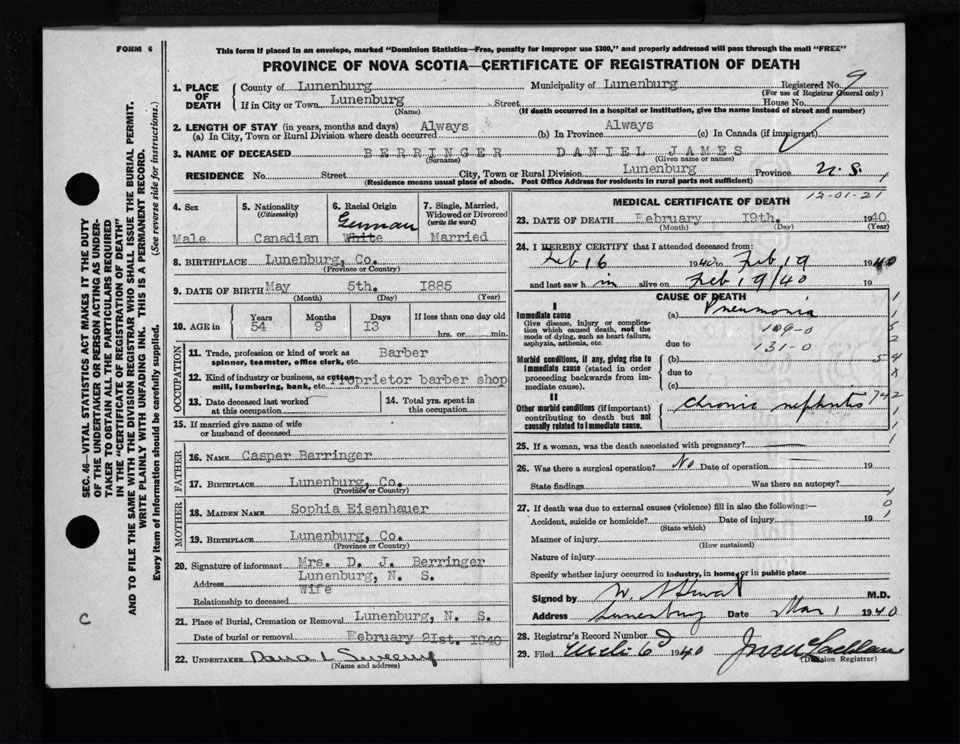 FORM 6
This form if placed in an envelope, marked "Dominion Statistics—Free, penalty for improper use $300," and properly addressed will pass through the mail "FREE"
PROVINCE OF NOVA SCOTIA—CERTIFICATE OF REGISTRATION OF DEATH
SEC. 46—VITAL STATISTICS ACT MAKES IT THE DUTY
OF THE UNDERTAKER OR PERSON ACTING AS UNDER-
TAKER TO OBTAIN ALL THE PARTICULARS REQUIRED
IN THE "CERTIFICATE OF REGISTRATION OF DEATH"
AND TO FILE THE SAME WITH THE DIVISION REGISTRAR WHO SHALL ISSUE THE BURIAL PERMIT.
WRITE PLAINLY WITH UNFADING INK. THIS IS A PERMANENT RECORD.
Every item of Information should be carefully supplied. (See reverse side for instructions.)
C
1. PLACE OF DEATH County of Lunenburg Municipality of Lunenburg Registered No. 9
(For use of Registrar General only)
If in City or Town Lunenburg Street House No.
(Name) (If death occurred in a hospital or institution, give the name instead of street and number)
2. LENGTH OF STAY (in years, months and days) Always Always
(a) In City, Town or Rural Division where death occurred (b) In Province (c) In Canada (if immigrant)
3. NAME OF DECEASED BERRINGER DANIEL JAMES
(Surname) (Given name or names)
RESIDENCE No. Street City, Town or Rural Division Lunenburg Province N.S.
(Residence means usual place of abode. Post Office Address for residents in rural parts not sufficient)
4. Sex Male
5. Nationality (Citizenship) Canadian
6. Racial Origin German White
7. Single, Married, Widowed or Divorced (write the word) Married
8. BIRTHPLACE Lunenburg, Co.
(Province or Country)
9. DATE OF BIRTH May 5th. 1885
(Month) (Day) (Year)
10. AGE in Years 54 Months 9 Days 13 If less than one day old
hrs. or min.
OCCUPATION
11. Trade, profession or kind of work as spinner, teamster, office clerk, etc. Barber
12. Kind of industry or business, as cotton mill, lumbering, bank, etc. Proprietor barber shop
13. Date deceased last worked at this occupation
14. Total yrs. spent in this occupation
15. If married give name of wife or husband of deceased
FATHER
16. NAME Casper Berringer
17. BIRTHPLACE Lunenburg, Co.
(Province or Country)
MOTHER
18. MAIDEN NAME Sophia Eisenhauer
19. BIRTHPLACE Lunenburg, Co.
(Province or Country)
20. Signature of informant Mrs. D. J. Berringer
Address Lunenburg, N. S.
Relationship to deceased Wife
21. Place of Burial, Cremation or Removal Lunenburg, N. S.
Date of burial or removal February 21st. 1940
22. UNDERTAKER
(Name and address)
12-01-21
MEDICAL CERTIFICATE OF DEATH
23. DATE OF DEATH February 19th. 1940
(Month) (Day) (Year)
24. I HEREBY CERTIFY that I attended deceased from:
Feb 16 1940 to Feb 19 1940
and last saw h im alive on Feb 19/40 19
CAUSE OF DEATH
I
Immediate cause (a) Pneumonia
Give disease, injury or complication which caused death, not the mode of dying, such as heart failure, asphyxia, asthenia, etc.
109-0
due to 131-0
Morbid conditions, if any, giving rise to immediate cause (stated in order proceeding backwards from immediate cause).
(b)
due to
(c)
II
Other morbid conditions (if important) contributing to death but not causally related to immediate cause.
Chronic nephritis
25. If a woman, was the death associated with pregnancy?
26. Was there a surgical operation? No Date of operation 19
State findings Was there an autopsy?
27. If death was due to external causes (violence) fill in also the following:—
Accident, suicide or homicide? Date of injury 19
(State which)
Manner of injury
(How sustained)
Nature of injury
Specify whether injury occurred in industry, in home, or in public place
Signed by M.D.
Address Lunenburg Date Mar 1 1940
28. Registrar's Record Number 9
29. Filed 1940
(Division Registrar)